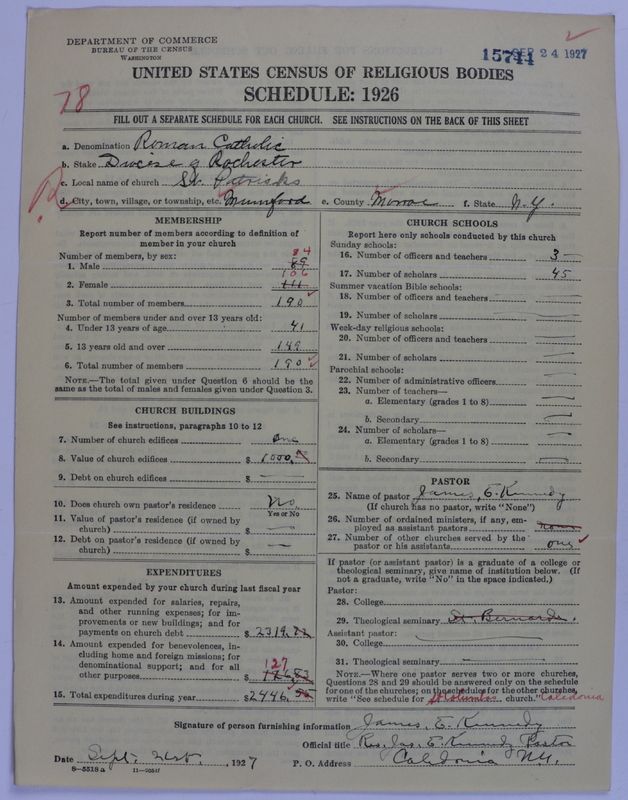 DEPARTMENT OF COMMERCE
BUREAU OF THE CENSUS
WASHINGTON
15744 SEP 24 1927
UNITED STATES CENSUS OF RELIGIOUS BODIES
SCHEDULE: 1926
78
FILL OUT A SEPARATE SCHEDULE FOR EACH CHURCH. SEE INSTRUCTIONS ON THE BACK OF THIS SHEET
a. Denomination Roman Catholic
b. Stake Diocese of Rochester
c. Local name of church St. Patricks
d. City, town, village, or township, etc. Mumford e. County Monroe f. State N.Y.
MEMBERSHIP
Report number of members according to definition of
member in your church
Number of members, by sex:
1. Male 89 84
2. Female 111 106
3. Total number of members 190
Number of members under and over 13 years old:
4. Under 13 years of age 41
5. 13 years old and over 149
6. Total number of members 190
NOTE.—The total given under Question 6 should be the
same as the total of males and females given under Question 3.
CHURCH BUILDINGS
See instructions, paragraphs 10 to 12
7. Number of church edifices one
8. Value of church edifices $
9. Debt on church edifices $ —
10. Does church own pastor's residence No.
Yes or No
11. Value of pastor's residence (if owned by
church) $ —
12. Debt on pastor's residence (if owned by
church) $ —
EXPENDITURES
Amount expended by your church during last fiscal year
13. Amount expended for salaries, repairs,
and other running expenses; for im-
provements or new buildings; and for
payments on church debt $ 2319.
14. Amount expended for benevolences, in-
cluding home and foreign missions; for
denominational support; and for all
other purposes $ 127
15. Total expenditures during year $ 2446.
CHURCH SCHOOLS
Report here only schools conducted by this church
Sunday schools:
16. Number of officers and teachers 3 —
17. Number of scholars 45
Summer vacation Bible schools:
18. Number of officers and teachers —
19. Number of scholars —
Week-day religious schools:
20. Number of officers and teachers —
21. Number of scholars —
Parochial schools:
22. Number of administrative officers —
23. Number of teachers—
a. Elementary (grades 1 to 8) —
b. Secondary —
24. Number of scholars—
a. Elementary (grades 1 to 8) —
b. Secondary —
PASTOR
25. Name of pastor James, E. Kennedy
(If church has no pastor, write "None")
26. Number of ordained ministers, if any, em-
ployed as assistant pastors none
27. Number of other churches served by the
pastor or his assistants one
If pastor (or assistant pastor) is a graduate of a college or
theological seminary, give name of institution below. (If
not a graduate, write "No" in the space indicated.)
Pastor:
28. College
29. Theological seminary St. Bernards.
Assistant pastor:
30. College —
31. Theological seminary —
NOTE.—Where one pastor serves two or more churches,
Questions 28 and 29 should be answered only on the schedule
for one of the churches; on the schedules for the other churches,
write "See schedule for St Columbas church." Caledonia
Signature of person furnishing information James, E. Kennedy
Official title Rev. Jas. E. Kennedy Pastor
Date Sept. 21st, 1927 P. O. Address Caledonia N.Y.
8—5518 a